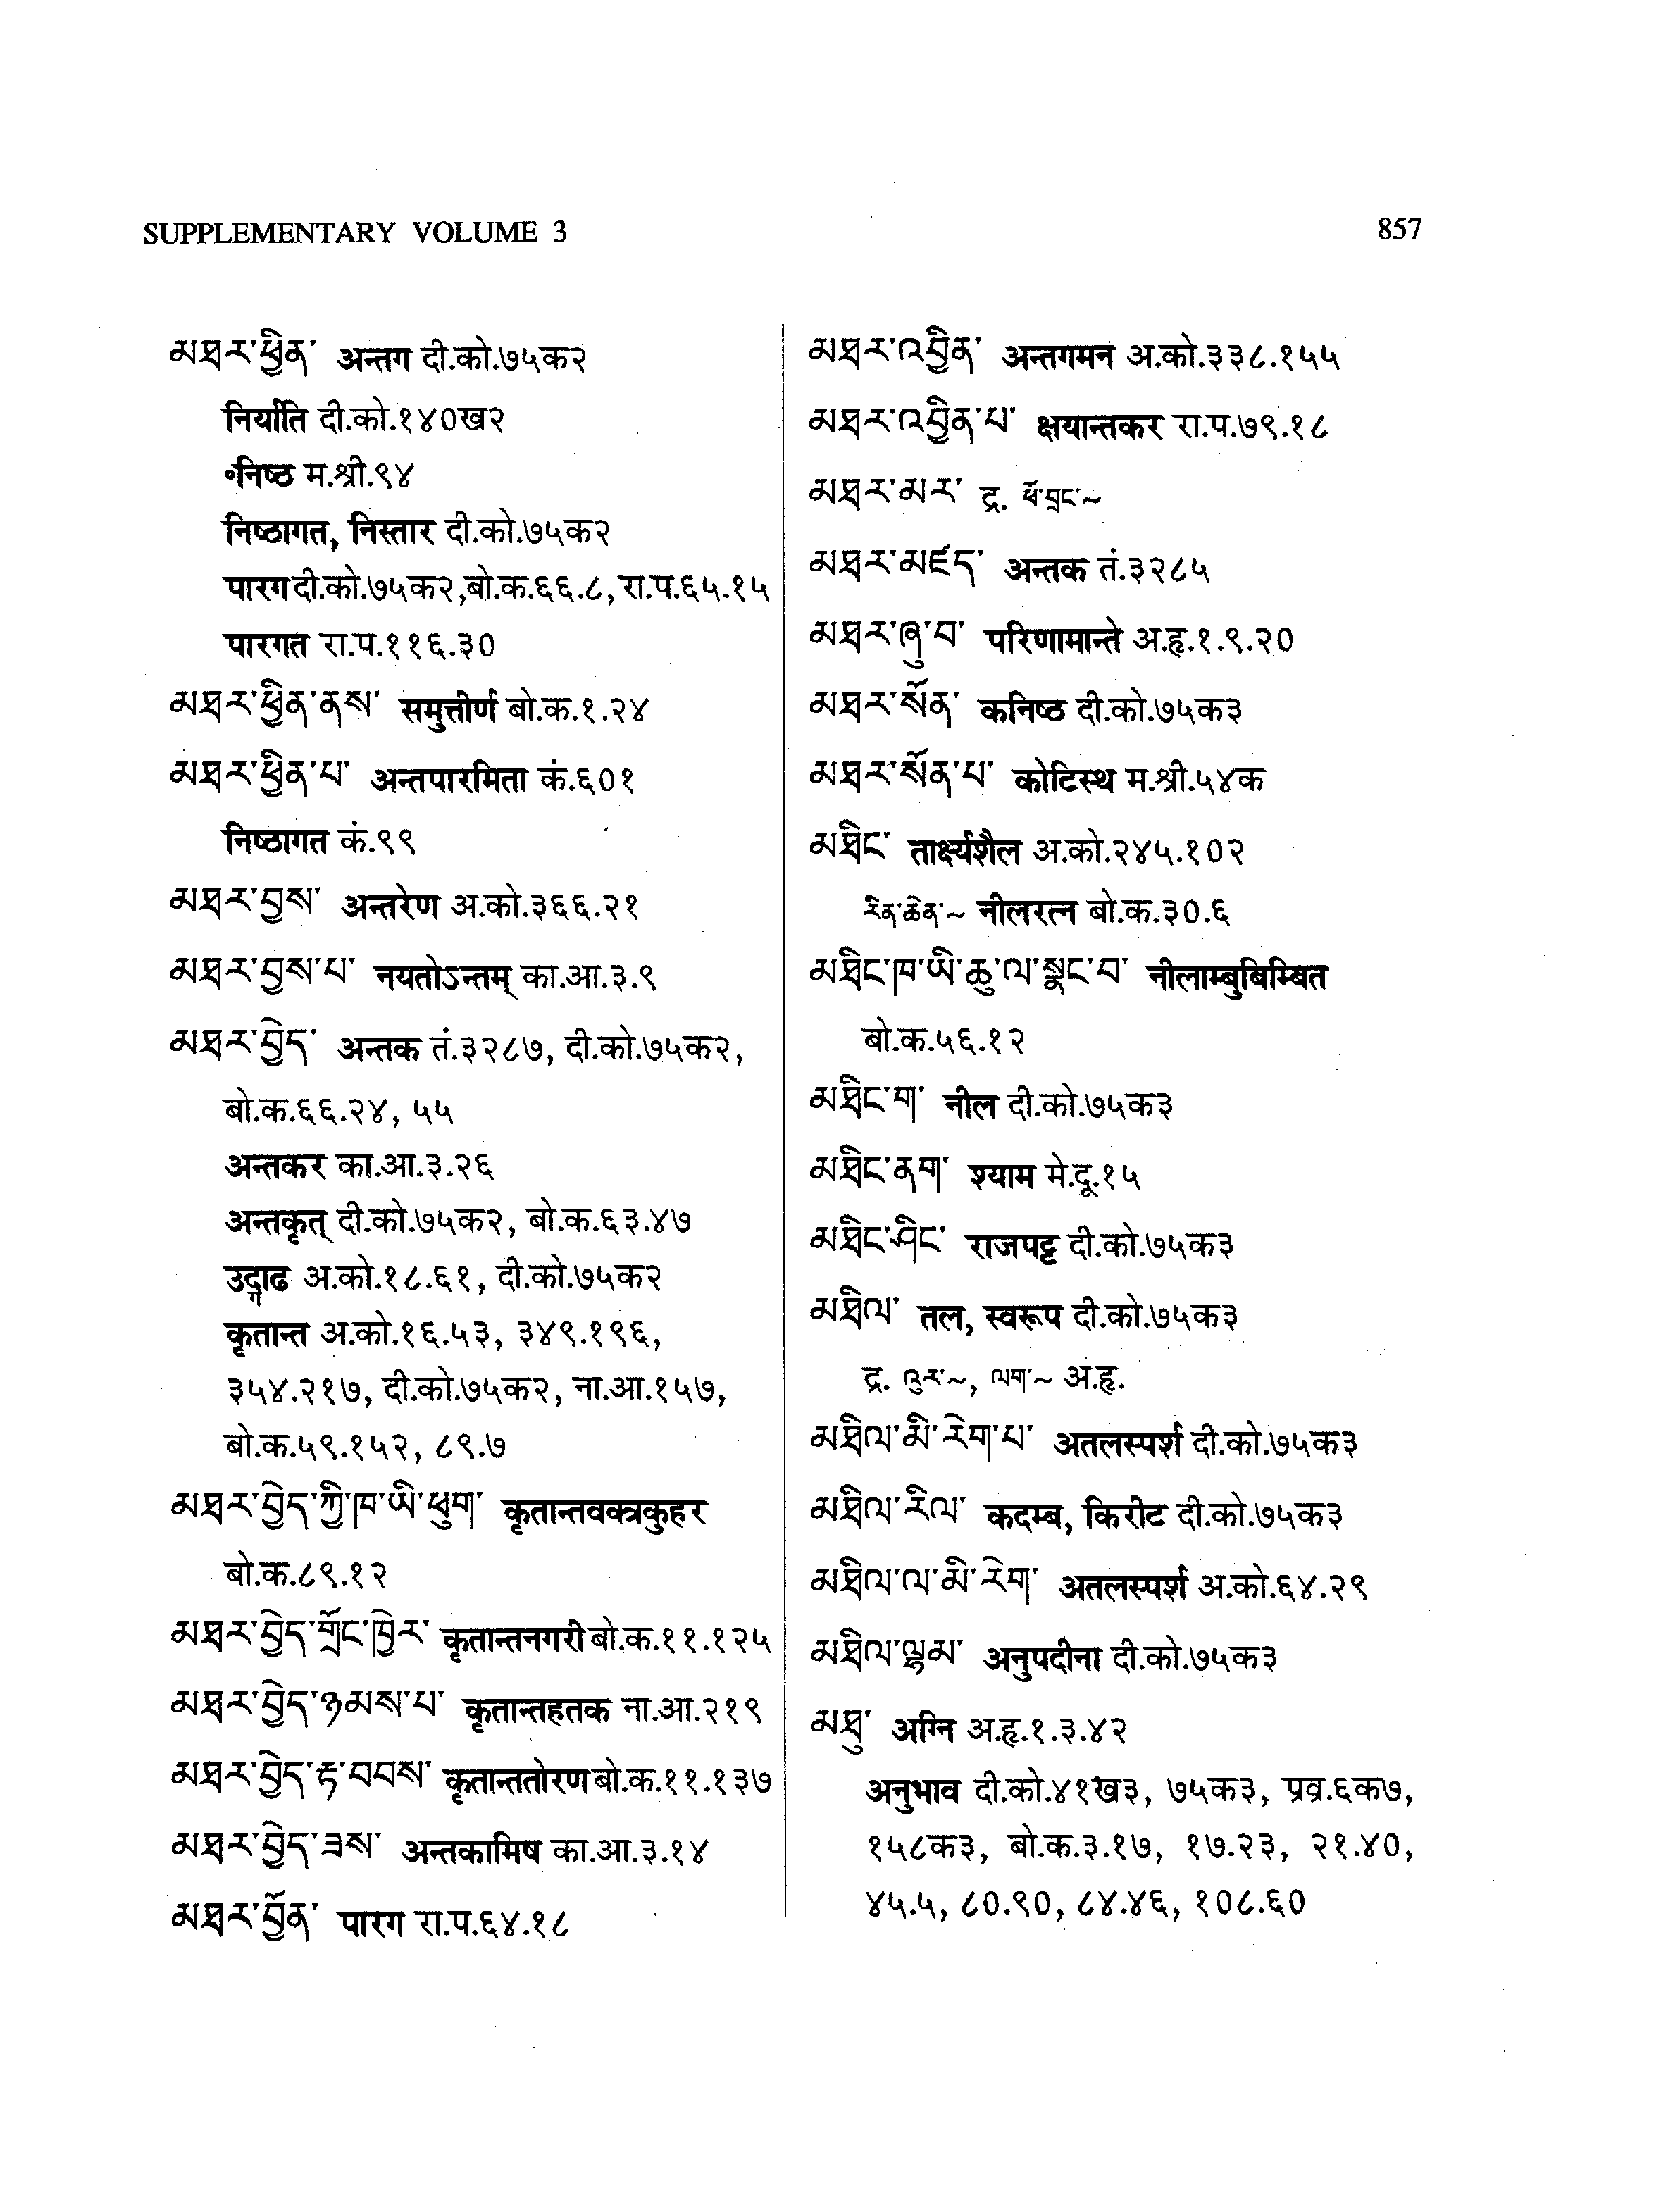 SUPPLEMENTARY VOLUME 3
857
མཐར་ཕྱིན་ अन्तग दी.को.७५क२
निर्याति दी.को.१४०ख२
॰निष्ठ म.श्री.९४
निष्ठागत, निस्तार दी.को.७५क२
पारग दी.को.७५क२,बो.क.६६.८, रा.प.६५.१५
पारगत रा.प.११६.३०
མཐར་ཕྱིན་ནས་ समुत्तीर्ण बो.क.१.२४
མཐར་ཕྱིན་པ་ अन्तपारमिता कं.६०१
निष्ठागत कं.९९
མཐར་བྱས་ अन्तरेण अ.को.३६६.२१
མཐར་བྱས་པ་ नयतोऽन्तम् का.आ.३.९
མཐར་བྱེད་ अन्तक तं.३२८७, दी.को.७५क२,
बो.क.६६.२४, ५५
अन्तकर का.आ.३.२६
अन्तकृत् दी.को.७५क२, बो.क.६३.४७
उद्गाढ अ.को.१८.६१, दी.को.७५क२
कृतान्त अ.को.१६.५३, ३४९.१९६,
३५४.२१७, दी.को.७५क२, ना.आ.१५७,
बो.क.५९.१५२, ८९.७
མཐར་བྱེད་ཀྱི་ཁ་ཡི་ཕུག་ कृतान्तवक्त्रकुहर
बो.क.८९.१२
མཐར་བྱེད་གྲོང་ཁྱེར་ कृतान्तनगरी बो.क.११.१२५
མཐར་བྱེད་ཉམས་པ་ कृतान्तहतक ना.आ.२१९
མཐར་བྱེད་རྟ་བབས་ कृतान्ततोरण बो.क.११.१३७
མཐར་བྱེད་ཟས་ अन्तकामिष का.आ.३.१४
མཐར་བྱོན་ पारग रा.प.६४.१८
མཐར་འབྱིན་ अन्तगमन अ.को.३३८.१५५
མཐར་འབྱིན་པ་ क्षयान्तकर रा.प.७९.१८
མཐར་མར་ द्र. ཕོ་བྲང་~
མཐར་མཛད་ अन्तक तं.३२८५
མཐར་ཞུ་བ་ परिणामान्ते अ.हृ.१.९.२०
མཐར་སོན་ कनिष्ठ दी.को.७५क३
མཐར་སོན་པ་ कोटिस्थ म.श्री.५४क
མཐིང་ तार्क्ष्यशैल अ.को.२४५.१०२
རིན་ཆེན་~ नीलरत्न बो.क.३०.६
མཐིང་ཁ་ཡི་ཆུ་ལ་སྣང་བ་ नीलाम्बुबिम्बित
बो.क.५६.१२
མཐིང་ག་ नील दी.को.७५क३
མཐིང་ནག་ श्याम मे.दू.१५
མཐིང་ཤིང་ राजपट्ट दी.को.७५क३
མཐིལ་ तल, स्वरूप दी.को.७५क३
द्र. འུར་~, ལག་~ अ.हृ.
མཐིལ་མི་རེག་པ་ अतलस्पर्श दी.को.७५क३
མཐིལ་རིལ་ कदम्ब, किरीट दी.को.७५क३
མཐིལ་ལ་མི་རེག་ अतलस्पर्श अ.को.६४.२९
མཐིལ་ལྷམ་ अनुपदीना दी.को.७५क३
མཐུ་ अग्नि अ.हृ.१.३.४२
अनुभाव दी.को.४१ख३, ७५क३, प्रव्र.६क७,
१५८क३, बो.क.३.१७, १७.२३, २१.४०,
४५.५, ८०.९०, ८४.४६, १०८.६०